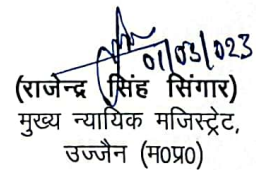 01/03/023
(राजेन्द्र सिंह सिंगार)
मुख्य न्यायिक मजिस्ट्रेट,
उज्जैन (म0प्र0)